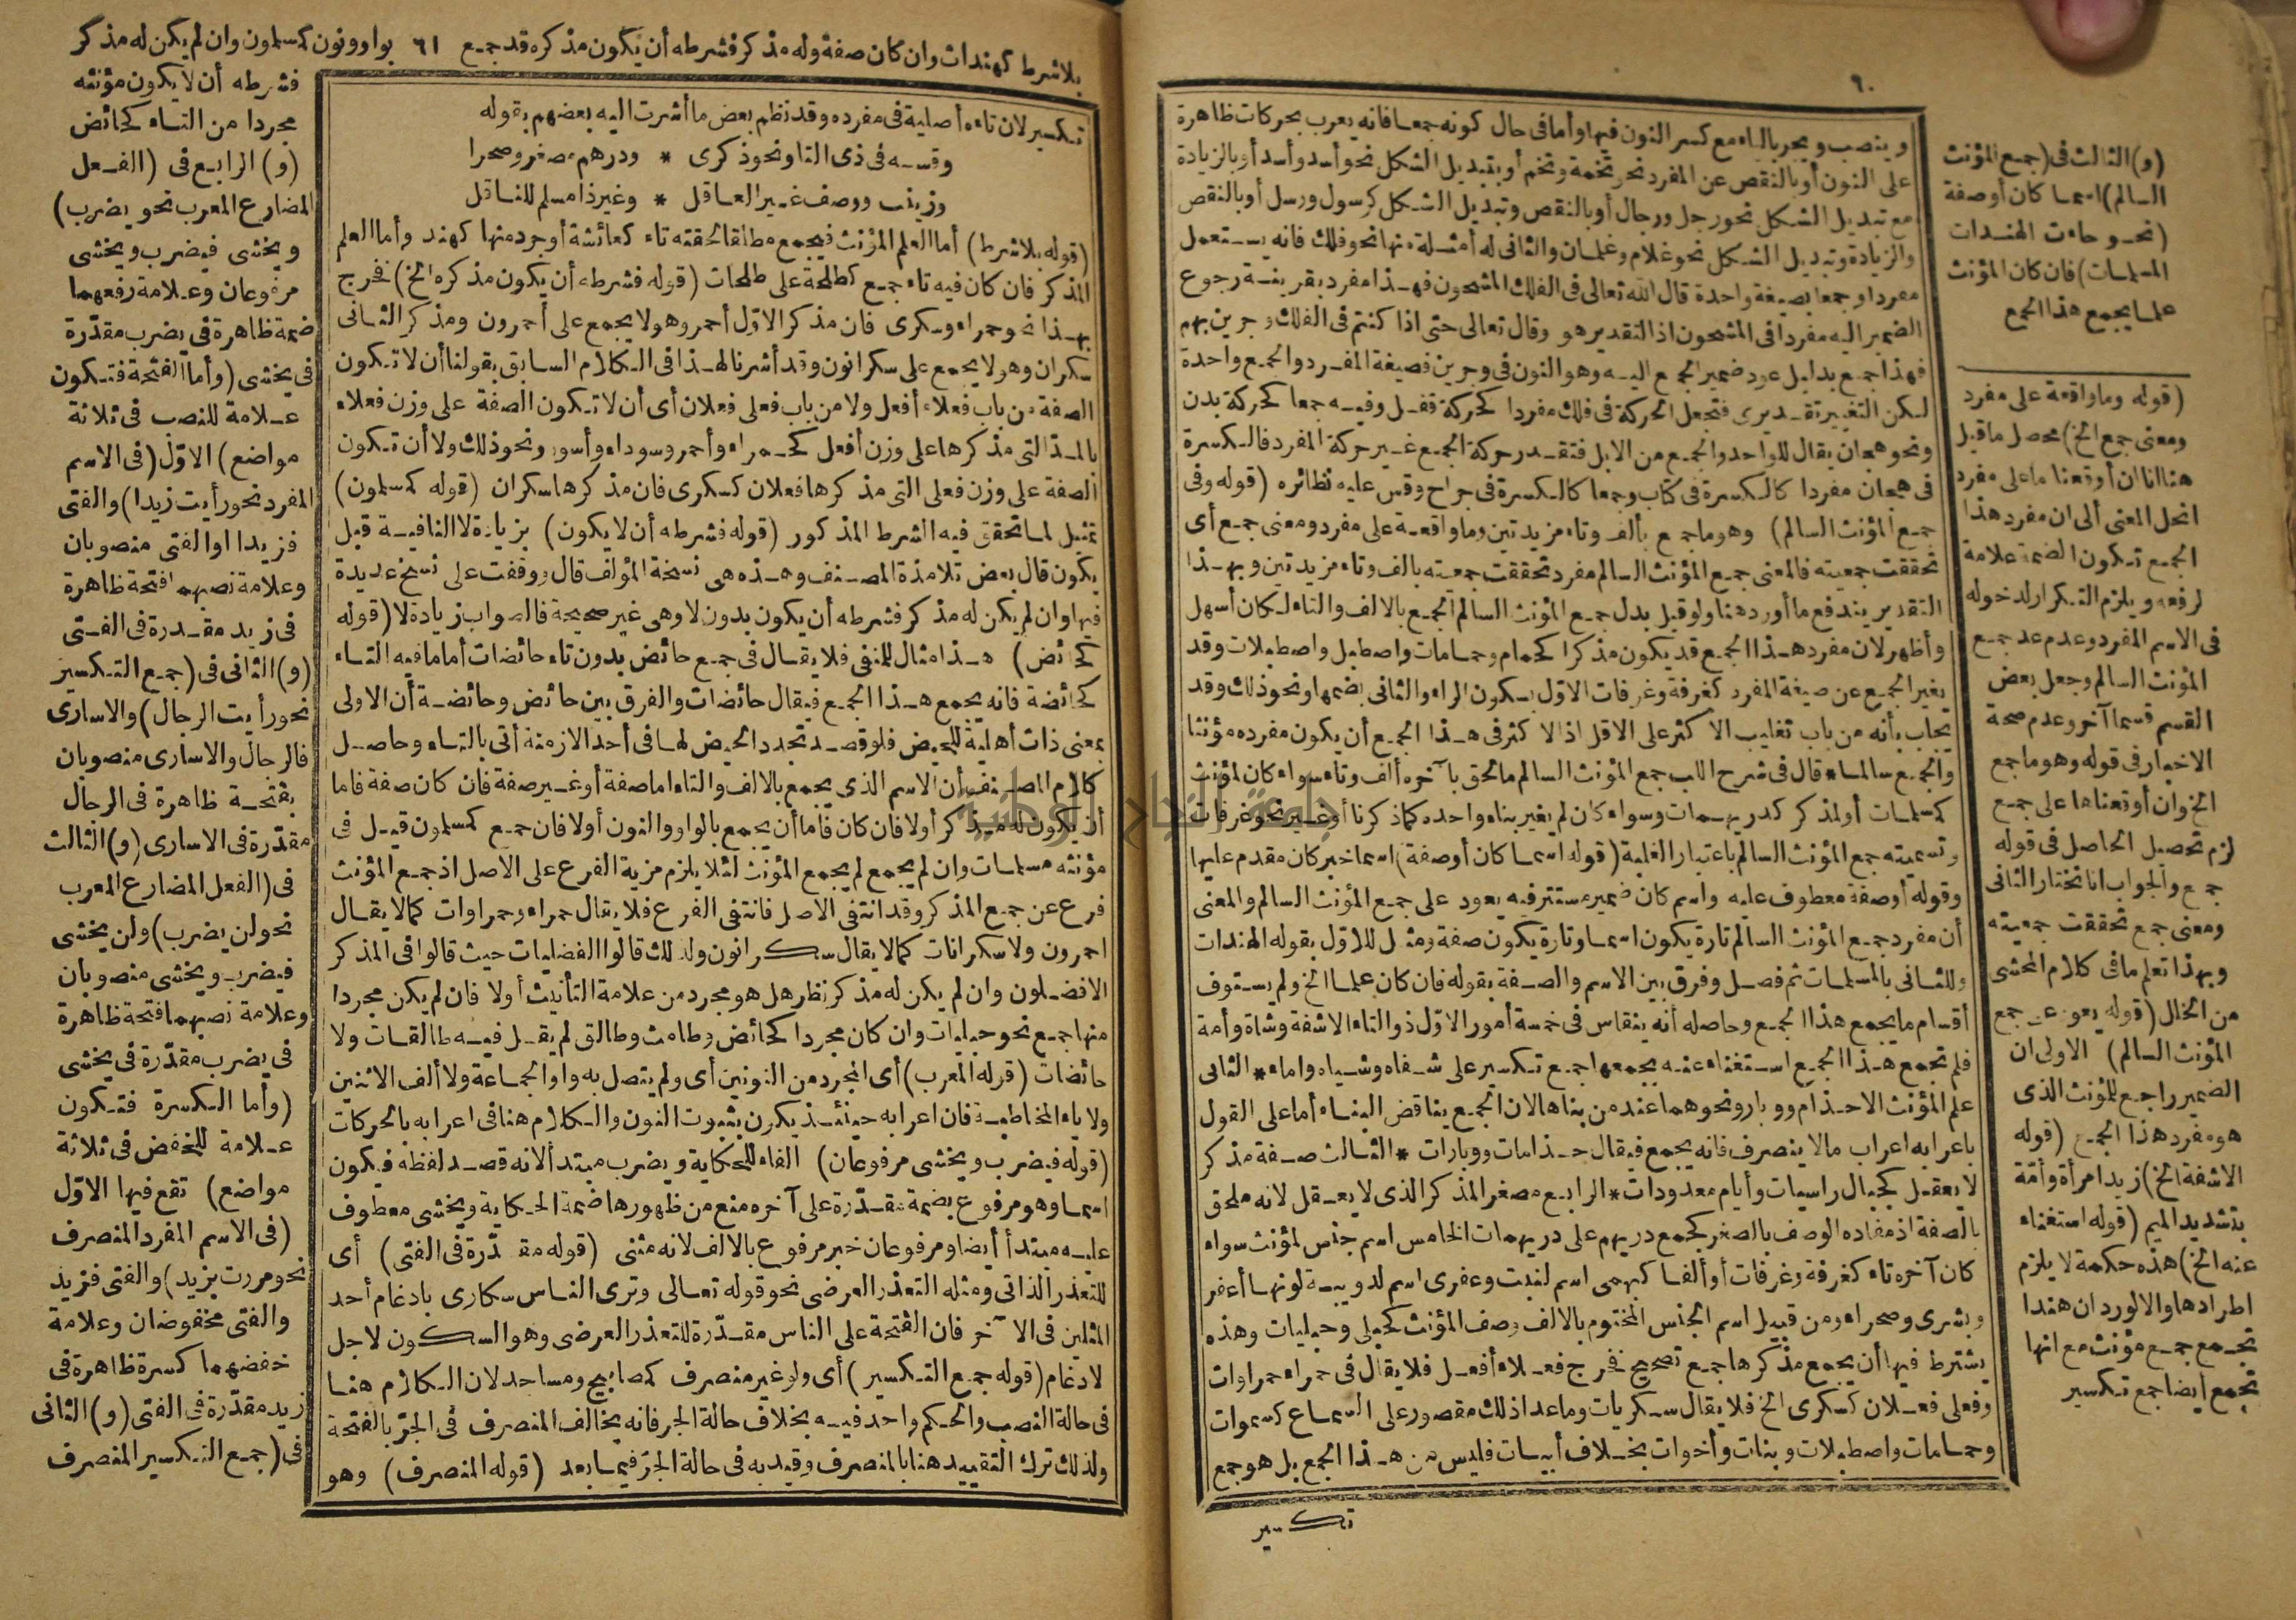 ٦٠
وينصب ويجر بالياء مع كسر النون فيها وأما في حال كونه جمعا فانه يعرب بحركات ظاهرة
على النون أو بالنقص عن المفرد نحو تخمة وتخم أو بتبديل الشكل نحو أسد وأسد أو بالزيادة
مع تبديل الشكل نحو رجل ورجال أو بالنقص وتبديل الشكل كرسول ورسل أو بالنقص
والزيادة وتبديل الشكل نحو غلام وغلمان والثاني له أمثلة منها نحو فلك فانه يستعمل
مفردا وجمعا بصيغة واحدة قال الله تعالى في الفلك المشحون فهذا مفرد بقرينة رجوع
الضمير اليه مفردا في المشحون اذ التقدير هو وقال تعالى حتى اذا كنتم في الفلك وجرين بهم
فهذا جمع بدليل عود ضمير الجمع اليه وهو النون في وجرين فصيغة المفرد والجمع واحدة
لكن التغيير تقديرى فتجعل الحركة في فلك مفردا كحركة قفل وفيه جمعا كحركة بدن
ونحو هجان يقال للواحد والجمع من الابل فتقدر حركة الجمع غير حركة المفرد فالكسرة
في هجان مفردا كالكسرة في كتاب وجمعا كالكسرة في جراح وقس عليه نظائره (قوله وفى
جمع المؤنث السالم) وهو ما جمع بألف وتاء مزيدتين وما واقعة على مفرد ومعنى جمع أى
تحققت جمعيته فالمعنى جمع المؤنث السالم مفرد تحققت جمعيته بالف وتاء مزيدتين وبهذا
التقدير يندفع ما أورد هنا ولو قيل بدل جمع المؤنث السالم الجمع بالالف والتاء لكان أسهل
وأظهر لان مفرد هذا الجمع قد يكون مذكرا كحمام وحمامات واصطبل واصطبلات وقد
يغير الجمع عن صيغة المفرد كغرفة وغرفات الاول بسكون الراء والثاني بضمها ونحو ذلك وقد
يجاب بأنه من باب تغليب الاكثر على الاقل اذ الاكثر في هذا الجمع أن يكون مفرده مؤنثا
والجمع سالما * قال في شرح اللب جمع المؤنث السالم ما لحق بآخره ألف وتاء سواء كان لمؤنث
كمسلمات أو لمذكر كدريهمات وسواء كان لم يغير بناء واحده كما ذكرنا أو غير نحو غرفات
وتسميته جمع المؤنث السالم باعتبار الغلبة (قوله اسما كان أو صفة) اسما خبر كان مقدم عليها
وقوله أو صفة معطوف عليه واسم كان ضمير مستتر فيه يعود على جمع المؤنث السالم والمعنى
أن مفرد جمع المؤنث السالم تارة يكون اسما وتارة يكون صفة ومثل للاول بقوله الهندات
وللثاني بالمسلمات ثم فصل وفرق بين الاسم والصفة بقوله فان كان علما الخ ولم يستوف
أقسام ما يجمع هذا الجمع وحاصله أنه ينقاس في خمسة أمور الاول ذو التاء الا شفة وشاة وأمة
فلم تجمع هذا الجمع استغناء عنه بجمعها جمع تكسير على شفاه وشياه واماء * الثاني
علم المؤنث الا حذام ووبار ونحوهما عند من بناها لان الجمع يناقض البناء أما على القول
باعرابه اعراب ما لا ينصرف فانه يجمع فيقال حذامات ووبارات * الثالث صفة مذكر
لا يعقل كجبال راسيات وأيام معدودات * الرابع مصغر المذكر الذي لا يعقل لانه ملحق
بالصفة اذ مفاده الوصف بالصغر كجمع دريهم على دريهمات الخامس اسم جنس لمؤنث سواء
كان آخره تاء كغرفة وغرفات أو ألفا كبهمى اسم لنبت وعفرى اسم لدويبة لونها أعفر
وبشرى وصحراء ومن قبيل اسم الجنس المختوم بالالف وصف المؤنث كحبلى وحبليات وهذه
يشترط فيها أن يجمع مذكرها جمع تصحيح فخرج فعلاء أفعل فلا يقال في حمراء حمراوات
وفعلى فعلان كسكرى الخ فلا يقال سكريات وما عدا ذلك مقصور على السماع كسموات
وحمامات واصطبلات وبنات وأخوات بخلاف أبيات فليس من هذا الجمع بل هو جمع
تكسير
(و) الثالث في (جمع المؤنث
السالم) اسما كان أو صفة
(نحو جاءت الهندات
المسلمات) فان كان المؤنث
علما يجمع هذا الجمع
(قوله وما واقعة على مفرد
ومعنى جمع الخ) محصل ما قيل
هنا اننا ان أوقعنا ما على مفرد
انحل المعنى الى ان مفرد هذا
الجمع تكون الضمة علامة
لرفعه ويلزم التكرار لدخوله
في الاسم المفرد وعدم عد جمع
المؤنث السالم وجعل بعض
القسم قسما آخر وعدم صحة
الاخبار في قوله وهو ما جمع
الخ وان أوقعناها على جمع
لزم تحصيل الحاصل في قوله
جمع والجواب انا نختار الثاني
ومعنى جمع تحققت جمعيته
وبهذا تعلم ما في كلام المحشى
من الخلل (قوله يعود على جمع
المؤنث السالم) الاولى ان
الضمير راجع للمؤنث الذى
هو مفرد هذا الجمع (قوله
الا شفة الخ) زيد امرأة وأمة
بتشديد الميم (قوله استغناء
عنه الخ) هذه حكمة لا يلزم
اطرادها والا لورد ان هندا
تجمع جمع مؤنث مع انها
تجمع أيضا جمع تكسير
بلا شرط كهندات وان كان صفة وله مذكر فشرطه أن يكون مذكره قد جمع ٦١ بواو ونون كمسلمون وان لم يكن له مذكر
تكسير لان تاءه أصلية في مفرده وقد نظم بعض ما أشرت اليه بعضهم بقوله
وقسه في ذى التا ونحو ذكرى * ودرهم مصغر وصحرا
وزينب ووصف غير العاقل * وغير ذا مسلم للناقل
(قوله بلا شرط) أما العلم المؤنث فيجمع مطلقا لحقته تاء كعائشة أو جرد منها كهند وأما العلم
المذكر فان كان فيه تاء جمع كطلحة على طلحات (قوله فشرطه أن يكون مذكره الخ) فخرج
بهذا نحو حمراء وسكرى فان مذكر الاول أحمر وهو لا يجمع على أحمرون ومذكر الثانى
سكران وهو لا يجمع على سكرانون وقد أشرنا لهذا في الكلام السابق بقولنا أن لا تكون
الصفة من باب فعلاء أفعل ولا من باب فعلى فعلان أى أن لا تكون الصفة على وزن فعلاء
بالمد التي مذكرها على وزن أفعل كحمراء وأحمر وسوداء وأسود ونحو ذلك ولا أن تكون
الصفة على وزن فعلى التي مذكرها فعلان كسكرى فان مذكرها سكران (قوله كمسلمون)
تمثيل لما تحقق فيه الشرط المذكور (قوله فشرطه أن لا يكون) بزيادة لا النافية قبل
يكون قال بعض تلامذة المصنف وهذه هى نسخة المؤلف قال ووقفت على نسخ عديدة
فيها وان لم يكن له مذكر فشرطه أن يكون بدون لا وهى غير صحيحة فالصواب زيادة لا (قوله
كحائض) هذا مثال للمنفى فلا يقال في جمع حائض بدون تاء حائضات أما ما فيه التاء
كحائضة فانه يجمع هذا الجمع فيقال حائضات والفرق بين حائض وحائضة أن الاولى
بمعنى ذات أهلية للحيض فلو قصد تجدد الحيض لها في أحد الازمنة أتى بالتاء وحاصل
كلام المصنف أن الاسم الذى يجمع بالالف والتاء اما صفة أو غير صفة فان كان صفة فاما
أن يكون له مذكر أولا فان كان فاما أن يجمع بالواو والنون أولا فان جمع كمسلمون قيل في
مؤنثه مسلمات وان لم يجمع لم يجمع المؤنث لئلا يلزم مزية الفرع على الاصل اذ جمع المؤنث
فرع عن جمع المذكر وقد انتفى الاصل فانتفى الفرع فلا يقال حمراء وحمراوات كما لا يقال
احمرون ولا سكرانات كما لا يقال سكرانون ولذلك قالوا الفضليات حيث قالوا في المذكر
الافضلون وان لم يكن له مذكر نظر هل هو مجرد من علامة التأنيث أولا فان لم يكن مجردا
منها جمع نحو حبليات وان كان مجردا كحائض وطامث وطالق لم يقل فيه طالقات ولا
حائضات (قوله المعرب) أى المجرد من النونين أى ولم يتصل به واو الجماعة ولا ألف الاثنين
ولا ياء المخاطبة فان اعرابه حينئذ يكون بثبوت النون والكلام هنا في اعرابه بالحركات
(قوله فيضرب ويخشى مرفوعان) الفاء للحكاية ويضرب مبتدأ لانه قصد لفظه فيكون
اسما وهو مرفوع بضمة مقدرة على آخره منع من ظهورها ضمة الحكاية ويخشى معطوف
عليه مبتدأ أيضا ومرفوعان خبر مرفوع بالالف لانه مثنى (قوله مقدرة في الفتى) أى
للتعذر الذاتى ومثله التعذر العرضى نحو قوله تعالى وترى الناس سكارى بادغام أحد
المثلين في الآخر فان الفتحة على الناس مقدرة للتعذر العرضى وهو السكون لاجل
لادغام (قوله جمع التكسير) أى ولو غير منصرف كمصابيح ومساجد لان الكلام هنا
في حالة النصب والحكم واحد فيه بخلاف حالة الجر فانه يخالف المنصرف في الجر بالفتحة
ولذلك ترك التقييد هنا بالمنصرف وقيد به في حالة الجر فيما بعد (قوله المنصرف) وهو
فشرطه أن لا يكون مؤنثه
مجردا من التاء كحائض
(و) الرابع في (الفعل
المضارع المعرب نحو يضرب)
ويخشى فيضرب ويخشى
مرفوعان وعلامة رفعهما
ضمة ظاهرة في يضرب مقدرة
في يخشى (وأما الفتحة فتكون
علامة للنصب في ثلاثة
مواضع) الاول (في الاسم
المفرد نحو رأيت زيدا) والفتى
فزيدا والفتى منصوبان
وعلامة نصبهما فتحة ظاهرة
في زيد مقدرة في الفتى
(و) الثانى في (جمع التكسير
نحو رأيت الرجال) والاسارى
فالرجال والاسارى منصوبان
بفتحة ظاهرة في الرجال
مقدرة في الاسارى (و) الثالث
في (الفعل المضارع المعرب
نحو لن يضرب) ولن يخشى
فيضرب ويخشى منصوبان
وعلامة نصبهما فتحة ظاهرة
في يضرب مقدرة في يخشى
(وأما الكسرة فتكون
علامة للخفض في ثلاثة
مواضع) تقع فيها الاول
(في الاسم المفرد المنصرف
نحو مررت بزيد) والفتى فزيد
والفتى مخفوضان وعلامة
خفضهما كسرة ظاهرة في
زيد مقدرة في الفتى (و) الثانى
في (جمع التكسير المنصرف